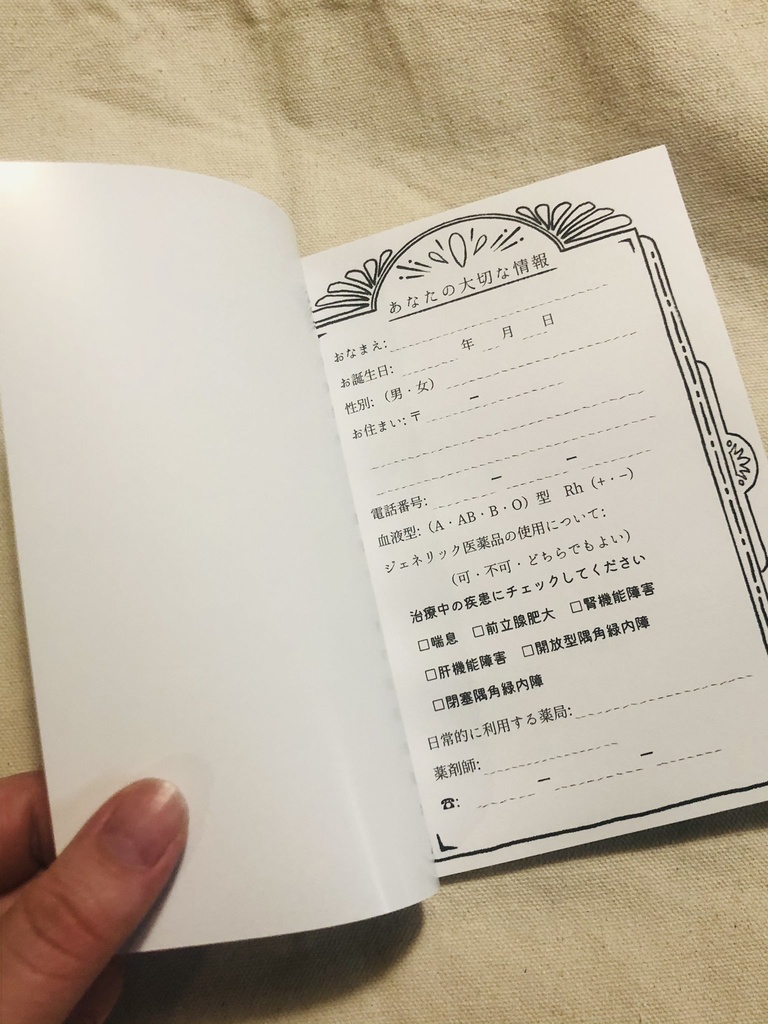 あなたの大切な情報
おなまえ:
お誕生日: 年 月 日
性別:（男・女）
お住まい:〒 −
− −
電話番号:
血液型:（A・AB・B・O）型 Rh（+・−）
ジェネリック医薬品の使用について:
（可・不可・どちらでもよい）
治療中の疾患にチェックしてください
□喘息 □前立腺肥大 □腎機能障害
□肝機能障害 □開放型隅角緑内障
□閉塞隅角緑内障
日常的に利用する薬局:
薬剤師:
☎: − −